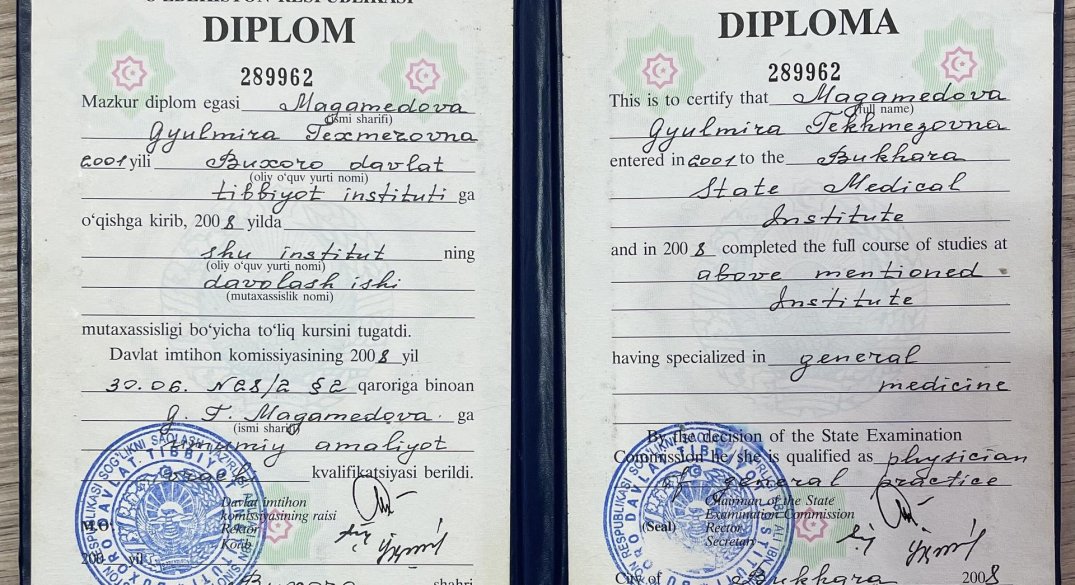 O‘ZBEKISTON RESPUBLIKASI
DIPLOM
289962
Mazkur diplom egasi Magamedova
(ismi sharifi)
Gyulmira Texmezovna
2001 yili Buxoro davlat
(oliy o‘quv yurti nomi)
tibbiyot instituti ga
o‘qishga kirib, 2008 yilda
shu institut ning
(oliy o‘quv yurti nomi)
davolash ishi
(mutaxassislik nomi)
mutaxassisligi bo‘yicha to‘liq kursini tugatdi.
Davlat imtihon komissiyasining 2008 yil
30.06. N28/2 §2 qaroriga binoan
G. T. Magamedova ga
(ismi sharifi)
umumiy amaliyot
kvalifikatsiyasi berildi.
Davlat imtihon
komissiyasining raisi
M.O. Rektor
Kotib
200 yil
Buxoro shahri
DIPLOMA
289962
This is to certify that Magamedova
(full name)
Gyulmira Tekhmezovna
entered in 2001 to the Bukhara
State Medical
Institute
and in 2008 completed the full course of studies at
above mentioned
Institute
having specialized in general
medicine
By the decision of the State Examination
Commission he/she is qualified as physician
of general practice
Chairman of the State
Examination Commission
(Seal) Rector
Secretary
City of Bukhara 2008